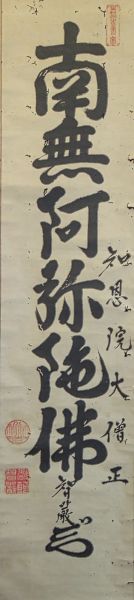 知恩院大僧正
南無阿弥陀佛
智嚴